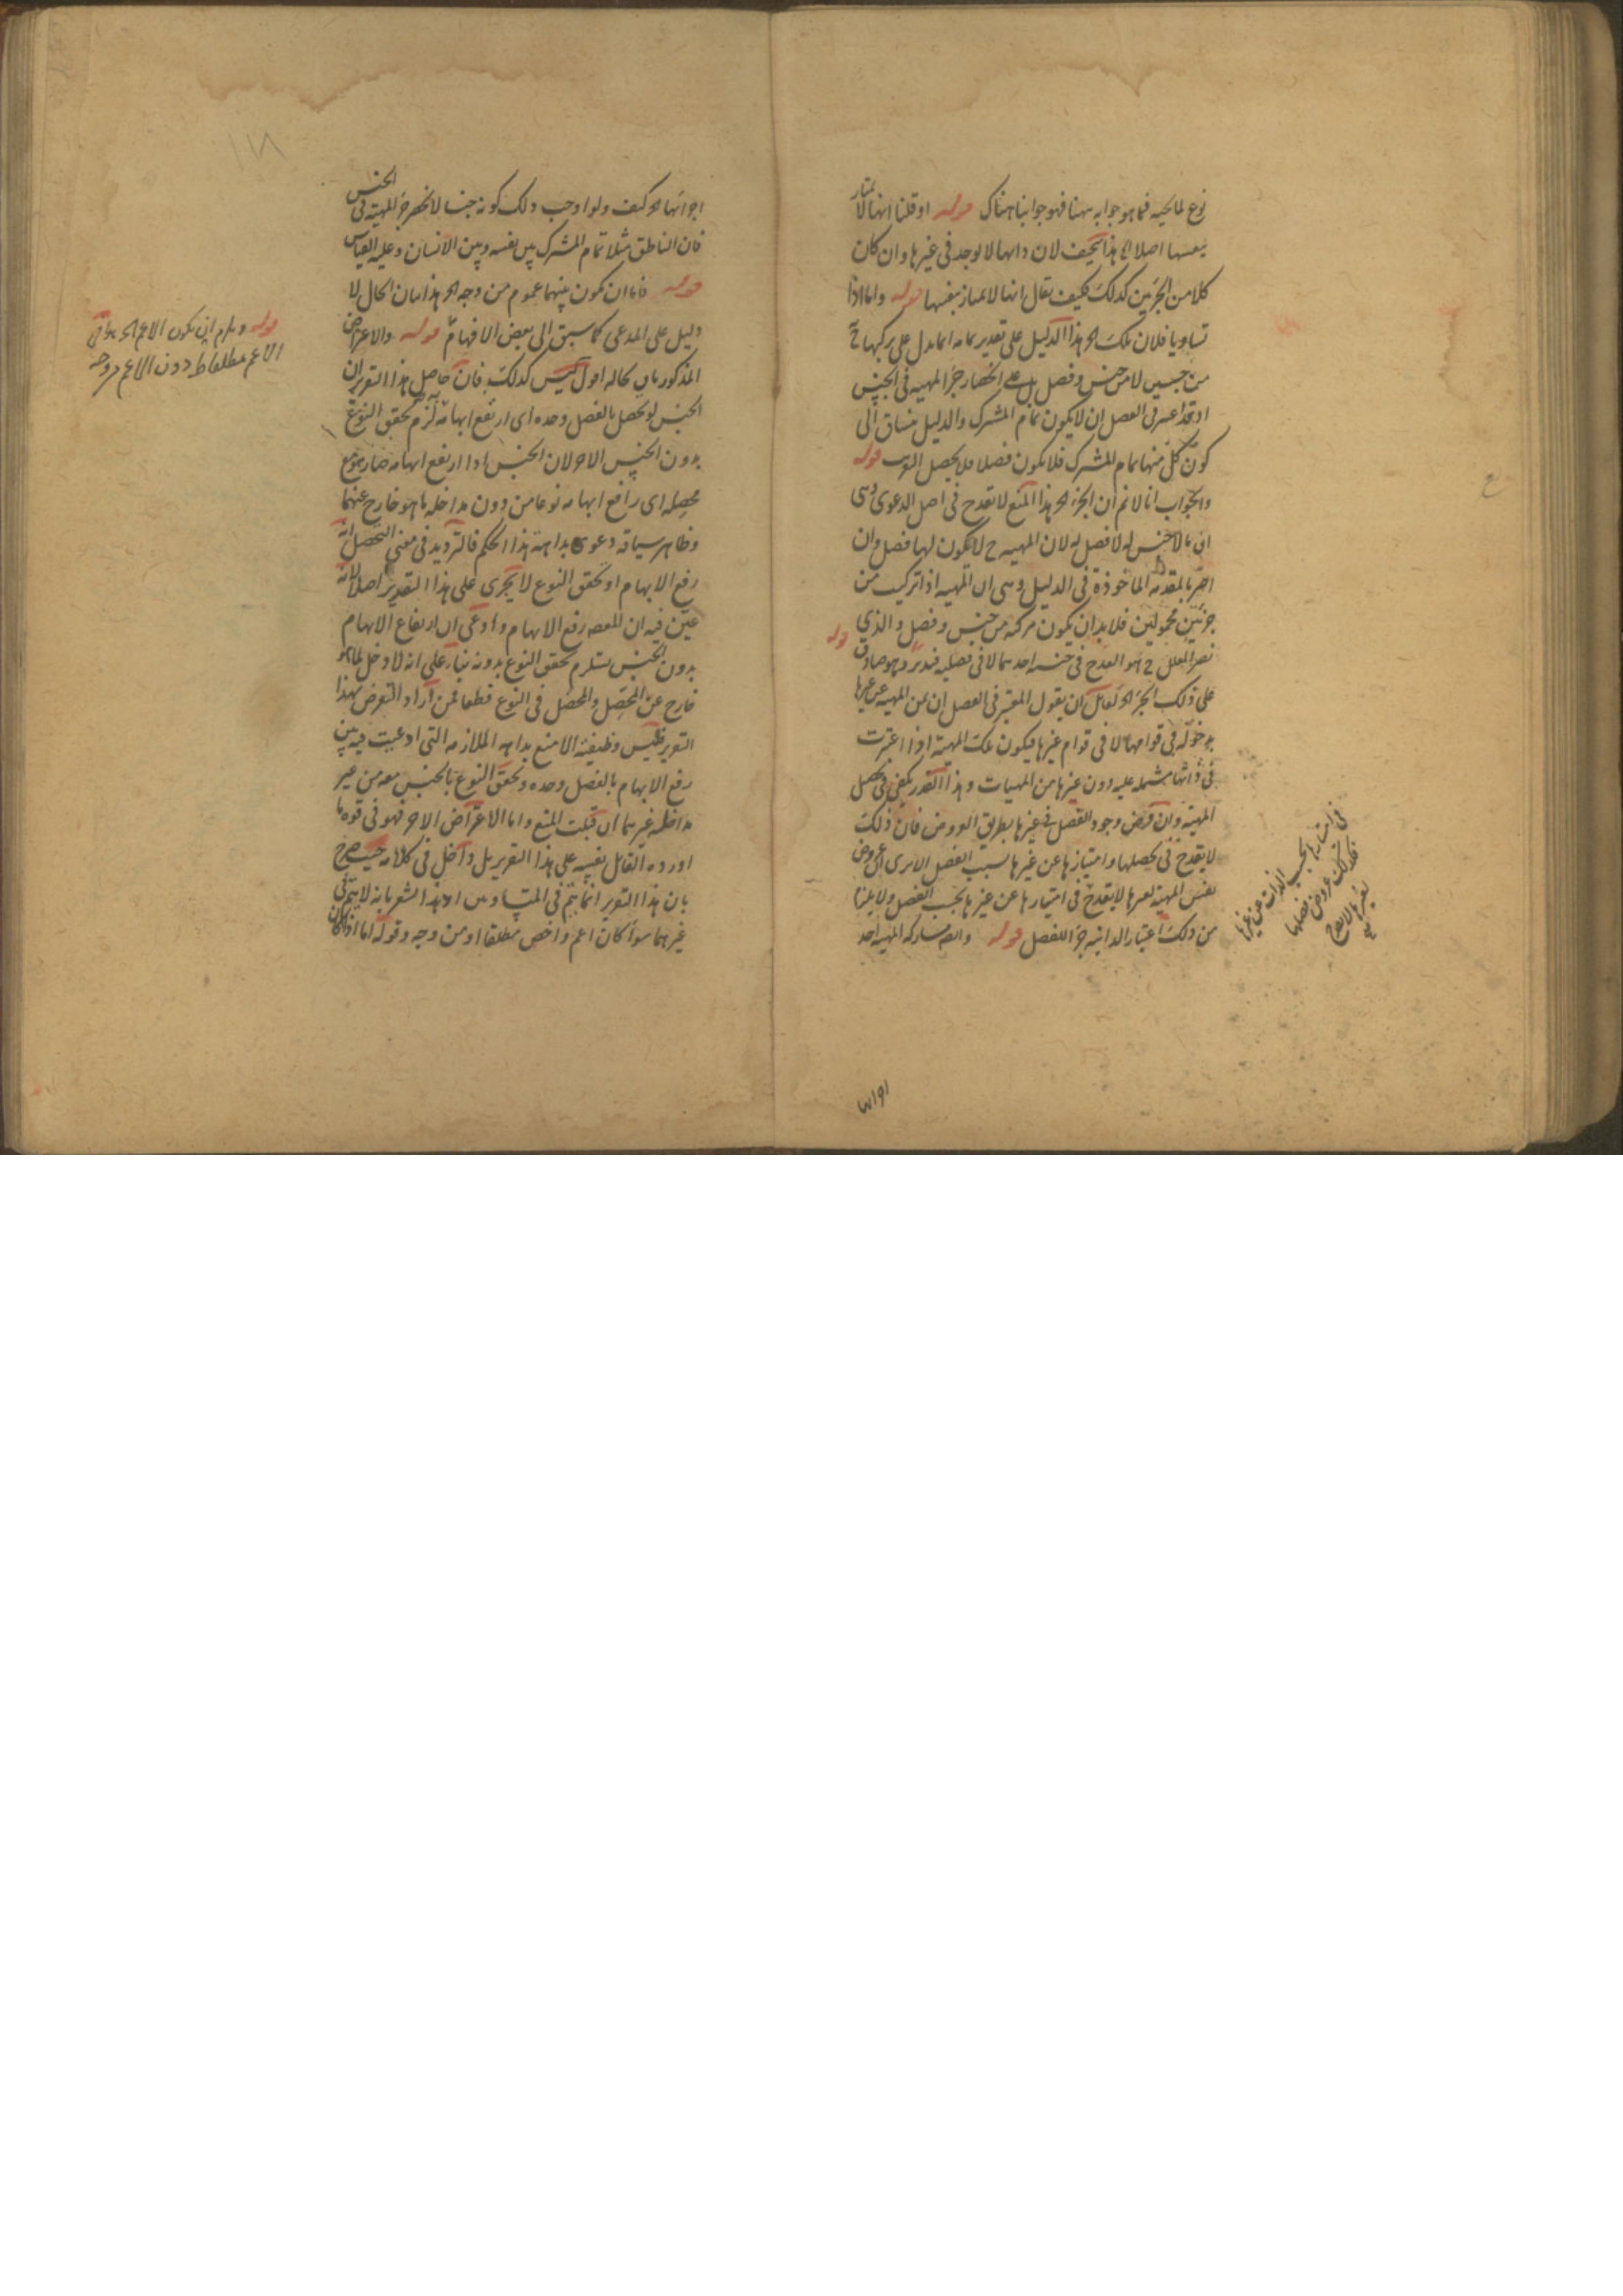 نوع لما لحيه فما هو جوابه ههنا فهو جوابنا هناك قوله او قلنا انها لا تمتاز
بنفسها اصلا الخ هذا سخيف لان ذاتها لا توجد فى غيرها وان كان
كلا من الجزئين كذلك فكيف يقال انها لا تمتاز بنفسها قوله واما اذا
تساويا فلان تلك الخ هذا الدليل على تقدير تمامه انما يدل على تركبها ح
من جنسين لا من جنس وفصل بل على انحصار جزء المهية فى الجنس
اذ قد اعتبر فى الفصل ان لا يكون تمام المشترك والدليل ينساق الى
كون كل منهما تمام المشترك فلا يكون فصلا فلا يحصل قوله
والجواب انا لا نم ان الجزء الخ هذا المنع لا يقدح فى اصل الدعوى وهى
ان ما لا جنس له لا فصل له لان المهية ح لا يكون لها فصل وان
اضر بالمقدمة الماخوذة فى الدليل وهى ان المهية اذا تركبت من
جزئين محمولين فلا بد ان يكون مركبة من جنس وفصل والذى
نصر المعلل ح هو القدح فى جنسية احدهما لا فى فصليته فتدبر قوله وهو صادق
على ذلك الجزء الخ لقائل ان يقول المعتبر فى الفصل ان يميز المهية عن غيرها
بدخوله فى قوامها لا فى قوام غيرها فيكون تلك المهية اذا اعتبرت
فى ذاتها مشتملة عليه دون غيرها من المهيات وهذا القدر يكفى فى تحصل
المهية وان فرض وجود الفصل فى غيرها بطريق العروض فان ذلك
لا يقدح فى تحصلها وامتيازها عن غيرها بسبب الفصل الا يرى ان عروض
نفس المهية لغيرها لا يقدح فى امتيازها عن غيرها بحسب الفصل ولا يلزم
من ذلك اعتبار الذاتية جزء للفصل قوله وايضا مشاركة المهية احد
فى امتيازها بحسب الذات عن غيرها
فكذلك عروض فصلها
لغيرها لا يقدح
اجزائها
اجزائها الخ كيف ولو اوجب ذلك كونه جنسا لانحصر جزء المهية فى الجنس
فان الناطق مثلا تمام المشترك بين نفسه وبين الانسان وعليه القياس
قوله فاما ان يكون بينهما عموم من وجه الخ هذا بيان الحال لا
دليل على المدعى كما سبق الى بعض الافهام قوله والاعتراض
المذكور باق بحاله اقول ليس كذلك فان حاصل هذا التقرير ان
الجنس لو تحصل بالفصل وحده اى ارتفع ابهامه به لزم تحقق النوع
بدون الجنس الاخر لان الجنس اذا ارتفع ابهامه صار مع
محصله اى رافع ابهامه نوعا من دون مداخلة ما هو خارج عنهما
وظاهر سياقه دعوى بداهة هذا الحكم فالترديد فى معنى التحصل انه
رفع الابهام او تحقق النوع لا يجرى على هذا التقدير اصلا لانه
عين فيه ان المقصود رفع الابهام وادعى ان ارتفاع الابهام
بدون الجنس يستلزم تحقق النوع بدونه بناء على انه لا دخل لما هو
خارج عن المحصل والمحصل فى النوع قطعا فمن اراد التعرض لهذا
التقرير فليس وظيفته الا منع بداهة الملازمة التى ادعيت فيه بين
رفع الابهام بالفصل وحده وتحقق النوع بالجنس معه من غير
مداخلة غيرهما ان قبلت المنع واما الاعتراض الاخر فهو فى قوة ما
اورده القائل نفسه على هذا التقرير بل داخل فى كلامه حيث صرح
بان هذا التقرير انما يتم فى المتساويين اذ هذا مشعر بانه لا يتم فى
غيرهما سواء كان اعم واخص مطلقا او من وجه وقوله اما اذا كان
قوله ويلزم ان يكون الاعم الخ
الاعم مطلقا فقط دون الاعم من وجه